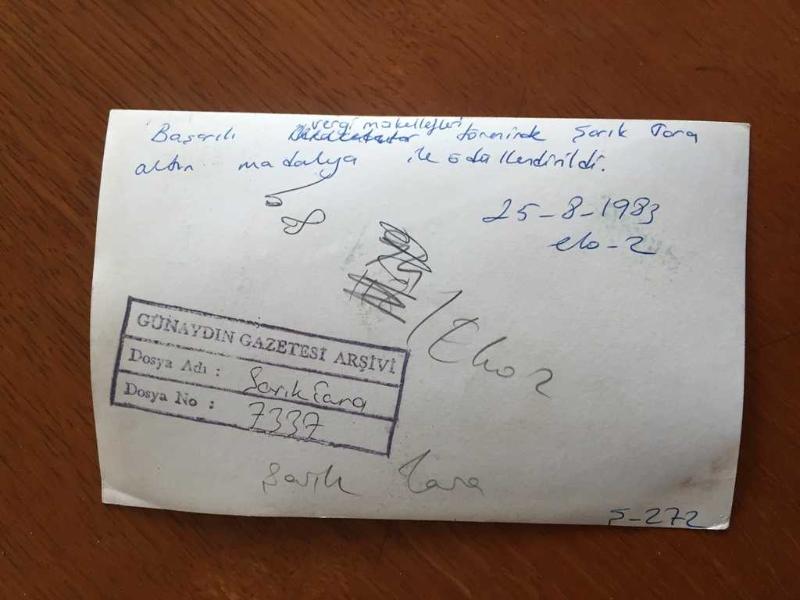 Başarılı vergi mükellefleri töreninde Şarık Tara
altın madalya ile ödüllendirildi.
25-8-1983
eko-2
Eko 2
GÜNAYDIN GAZETESİ ARŞİVİ
Dosya Adı : Şarık Tara
Dosya No : 7337
Şarık Tara
Ş-272